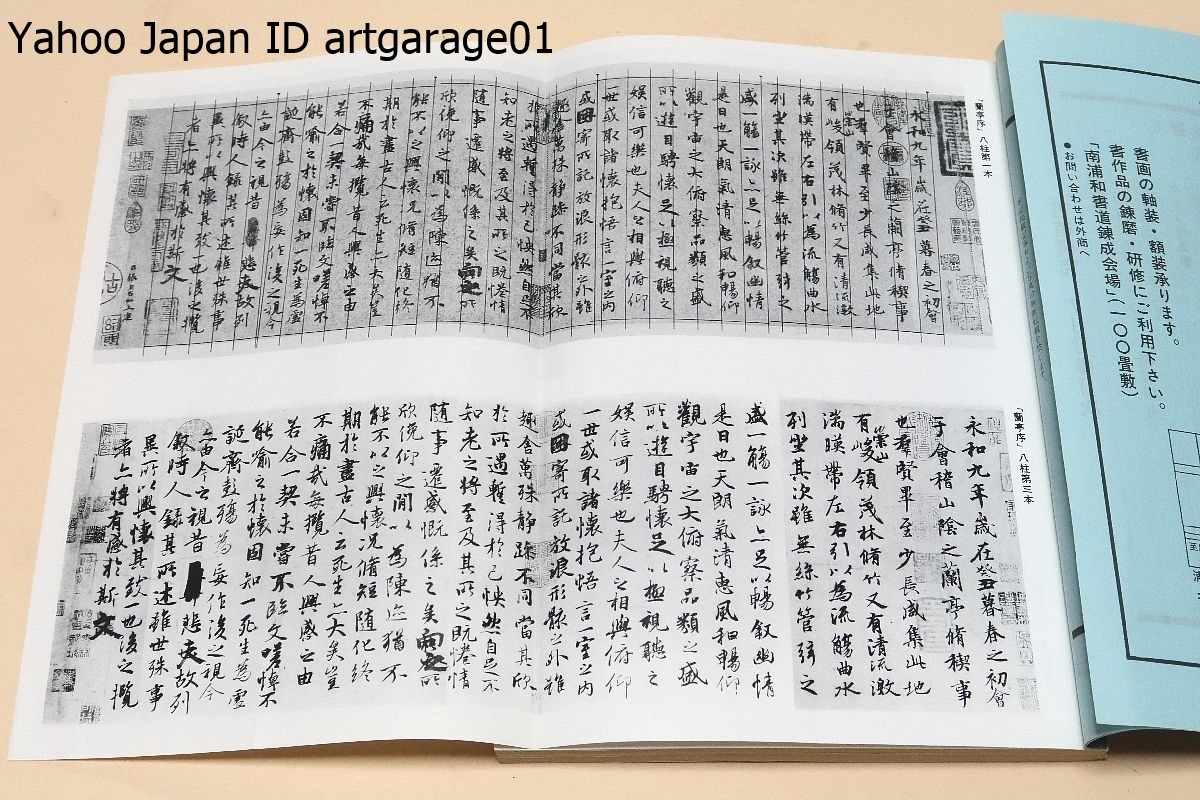 Yahoo Japan ID artgarage01
「蘭亭序」八柱第一本
永和九年歳在癸丑暮春之初會
于會稽山陰之蘭亭脩稧事
也羣賢畢至少長咸集此地
有崇山峻領茂林脩竹又有清流激
湍暎帶左右引以為流觴曲水
列坐其次雖無絲竹管弦之
盛一觴一詠亦足以暢叙幽情
是日也天朗氣清惠風和暢仰
觀宇宙之大俯察品類之盛
所以遊目騁懷足以極視聽之
娛信可樂也夫人之相與俯仰
一世或取諸懷抱悟言一室之内
或因寄所託放浪形骸之外雖
趣舍萬殊静躁不同當其欣
於所遇蹔得於己怏然自足不
知老之將至及其所之既惓情
隨事遷感慨係之矣向之所
欣俛仰之閒以為陳迹猶不
能不以之興懷況脩短隨化終
期於盡古人云死生亦大矣豈
不痛哉每攬昔人興感之由
若合一契未嘗不臨文嗟悼不
能喻之於懷固知一死生為虛
誕齊彭殤為妄作後之視今
亦由今之視昔悲夫故列
叙時人錄其所述雖世殊事
異所以興懷其致一也後之攬
者亦將有感於斯文
「蘭亭序」八柱第三本
永和九年歳在癸丑暮春之初會
于會稽山陰之蘭亭脩稧事
也羣賢畢至少長咸集此地
有崇山峻領茂林脩竹又有清流激
湍暎帶左右引以為流觴曲水
列坐其次雖無絲竹管弦之
盛一觴一詠亦足以暢叙幽情
是日也天朗氣清惠風和暢仰
觀宇宙之大俯察品類之盛
所以遊目騁懷足以極視聽之
娛信可樂也夫人之相與俯仰
一世或取諸懷抱悟言一室之内
或因寄所託放浪形骸之外雖
趣舍萬殊静躁不同當其欣
於所遇蹔得於己怏然自足不
知老之將至及其所之既惓情
隨事遷感慨係之矣向之所
欣俛仰之閒以為陳迹猶不
能不以之興懷況脩短隨化終
期於盡古人云死生亦大矣豈
不痛哉每攬昔人興感之由
若合一契未嘗不臨文嗟悼不
能喻之於懷固知一死生為虛
誕齊彭殤為妄作後之視今
亦由今之視昔悲夫故列
叙時人錄其所述雖世殊事
異所以興懷其致一也後之攬
者亦將有感於斯文
書画の軸装・額装承ります。
書作品の錬磨・研修にご利用下さい。
「南浦和書道錬成会場」(一〇〇畳敷)
●お問い合わせは外商へ